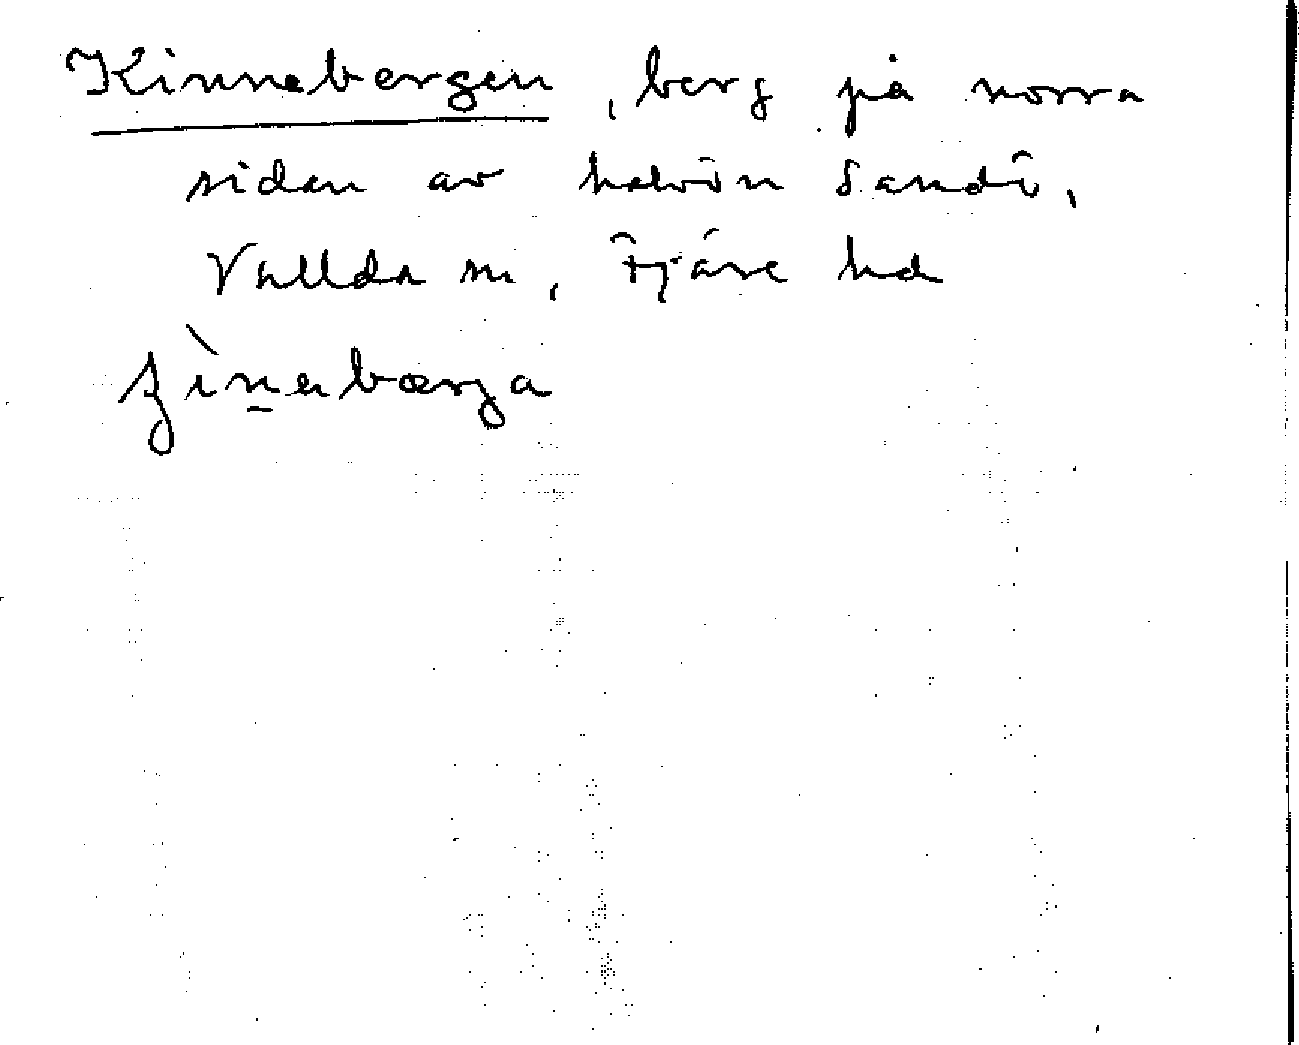 Kinnebergen, berg på norra
sidan av halvön Sandö,
Vallda sn, Fjäre hd